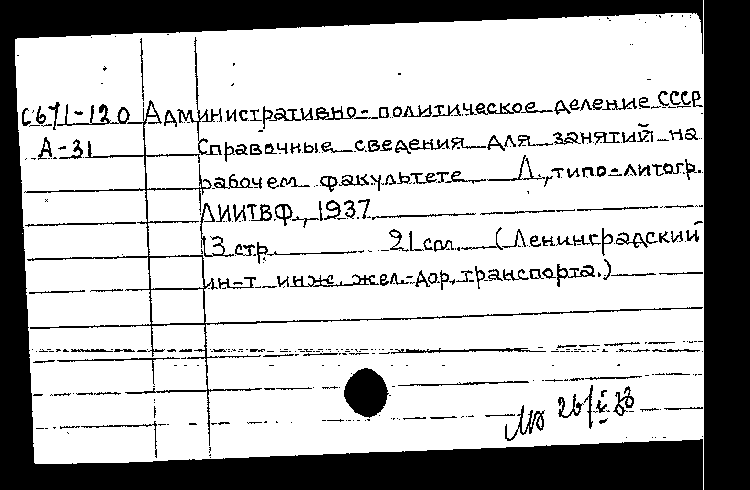 С671-120 Административно-политическое деление СССР
А-31 Справочные сведения для занятий на
рабочем факультете Л., типо-литогр.
ЛИИТВФ., 1937
13 стр. 21 см. (Ленинградский
ин-т инж. жел.-дор. транспорта.)
26/